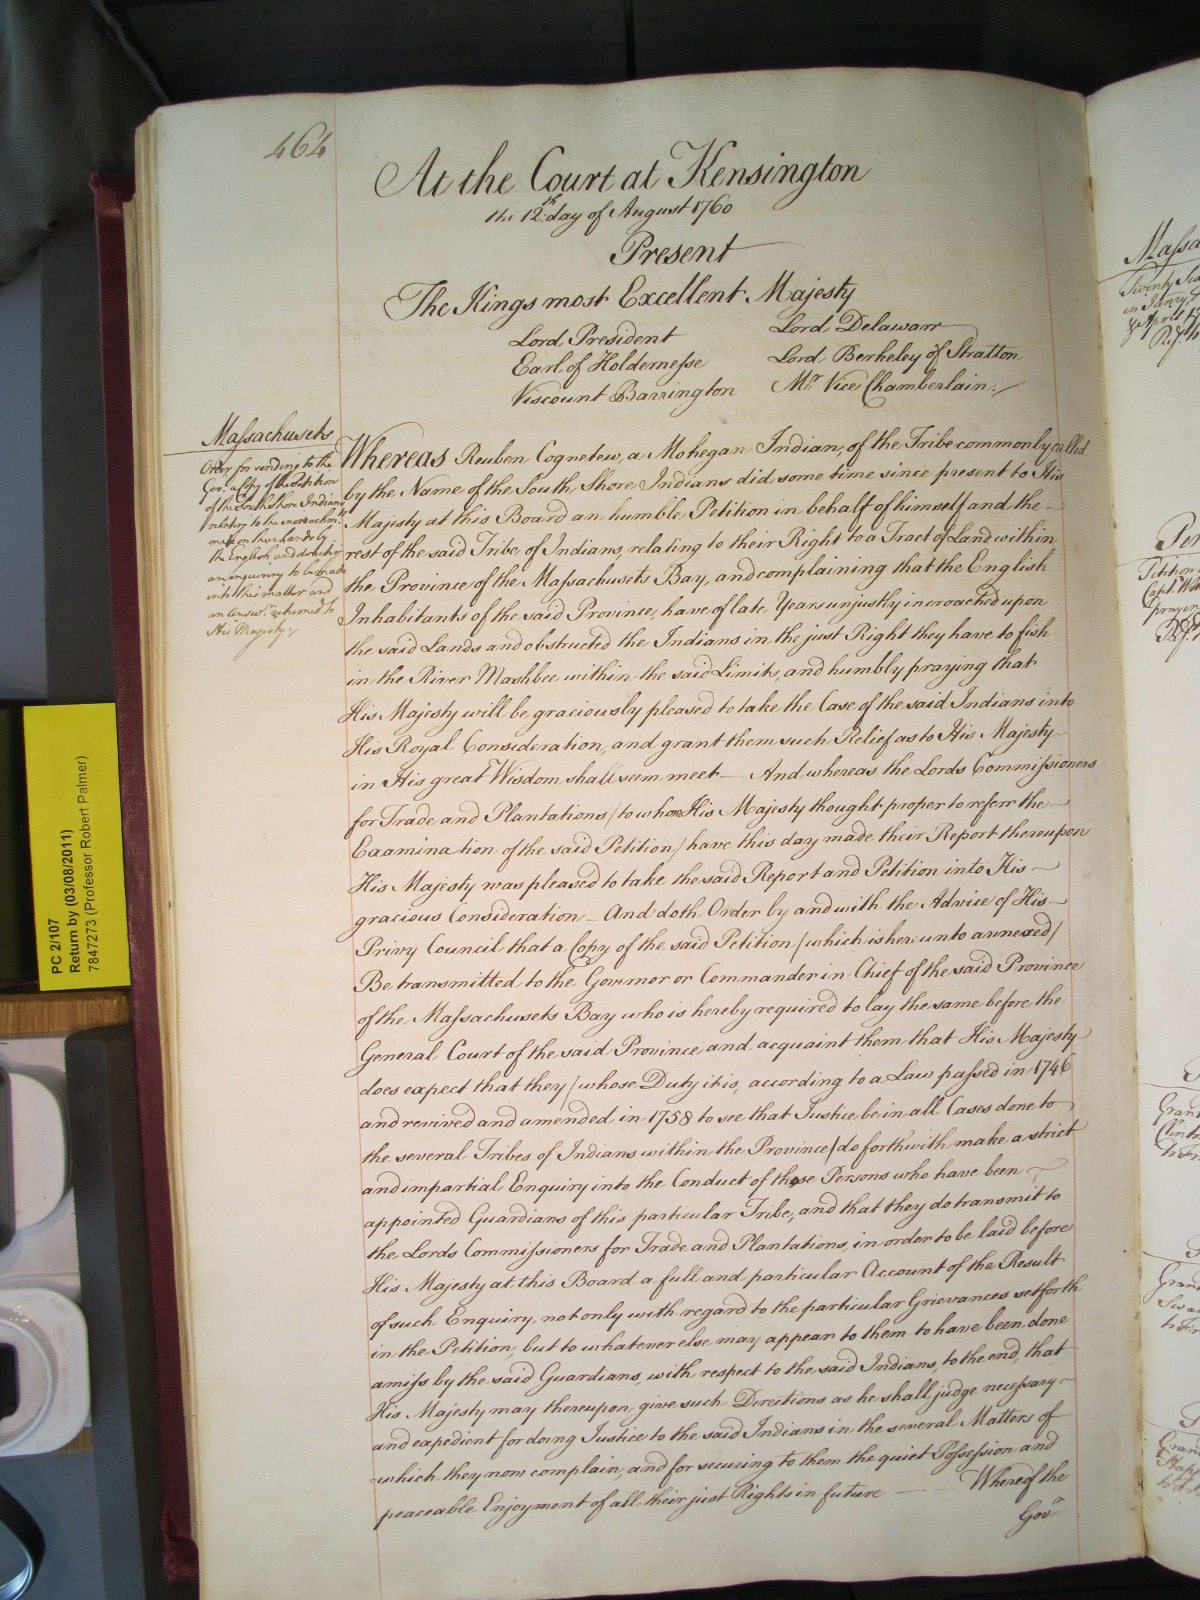 464
At the Court at Kensington
the 12th day of August 1760
Present
The Kings most Excellent Majesty
Lord President
Earl of Holdernesse
Viscount Barrington
Lord Delawarr
Lord Berkeley of Stratton
Mr. Vice Chamberlain.
Massachusets
Order for sending to the
Gov. a Copy of the Petition
of the South Shore Indians
relating to the incroachmts
made on their lands by
the English and directing
an enquiry to be made
into this matter and
an answr. returned to
His Majesty
Whereas Reuben Cognetew, a Mohegan Indian, of the Tribe commonly called
by the Name of the South Shore Indians did some time since present to His
Majesty at this Board an humble Petition in behalf of himself and the
rest of the said Tribe of Indians, relating to their Right to a Tract of Land within
the Province of the Massachusets Bay, and complaining that the English
Inhabitants of the said Province, have of late Years unjustly incroached upon
the said Lands and obstructed the Indians in the just Right they have to fish
in the River Mashbee within the said Limits, and humbly praying that
His Majesty will be graciously pleased to take the Case of the said Indians into
His Royal Consideration, and grant them such Relief as to His Majesty
in His great Wisdom shall seem meet — And whereas the Lords Commissioners
for Trade and Plantations (to whom His Majesty thought proper to referr the
Examination of the said Petition) have this day made their Report thereupon
His Majesty was pleased to take the said Report and Petition into His
gracious Consideration — And doth Order by and with the Advice of His
Privy Council that a Copy of the said Petition (which is hereunto annexed)
Be transmitted to the Governor or Commander in Chief of the said Province
of the Massachusets Bay who is hereby required to lay the same before the
General Court of the said Province and acquaint them that His Majesty
does expect that they (whose Duty it is, according to a Law passed in 1746
and revived and amended in 1758 to see that Justice be in all Cases done to
the several Tribes of Indians within the Province) do forthwith make a strict
and impartial Enquiry into the Conduct of those Persons who have been
appointed Guardians of this particular Tribe, and that they do transmit to
the Lords Commissioners for Trade and Plantations, in order to be laid before
His Majesty at this Board a full and particular Account of the Result
of such Enquiry, not only with regard to the particular Grievances set forth
in the Petition, but to whatever else may appear to them to have been done
amiss by the said Guardians, with respect to the said Indians, to the end, that
His Majesty may thereupon give such Directions as he shall judge necessary
and expedient for doing Justice to the said Indians in the several Matters of
which they now complain, and for securing to them the quiet Possession and
peaceable Enjoyment of all their just Rights in future — Whereof the
Govr
PC 2/107
Return by (03/08/2011)
7847273 (Professor Robert Palmer)